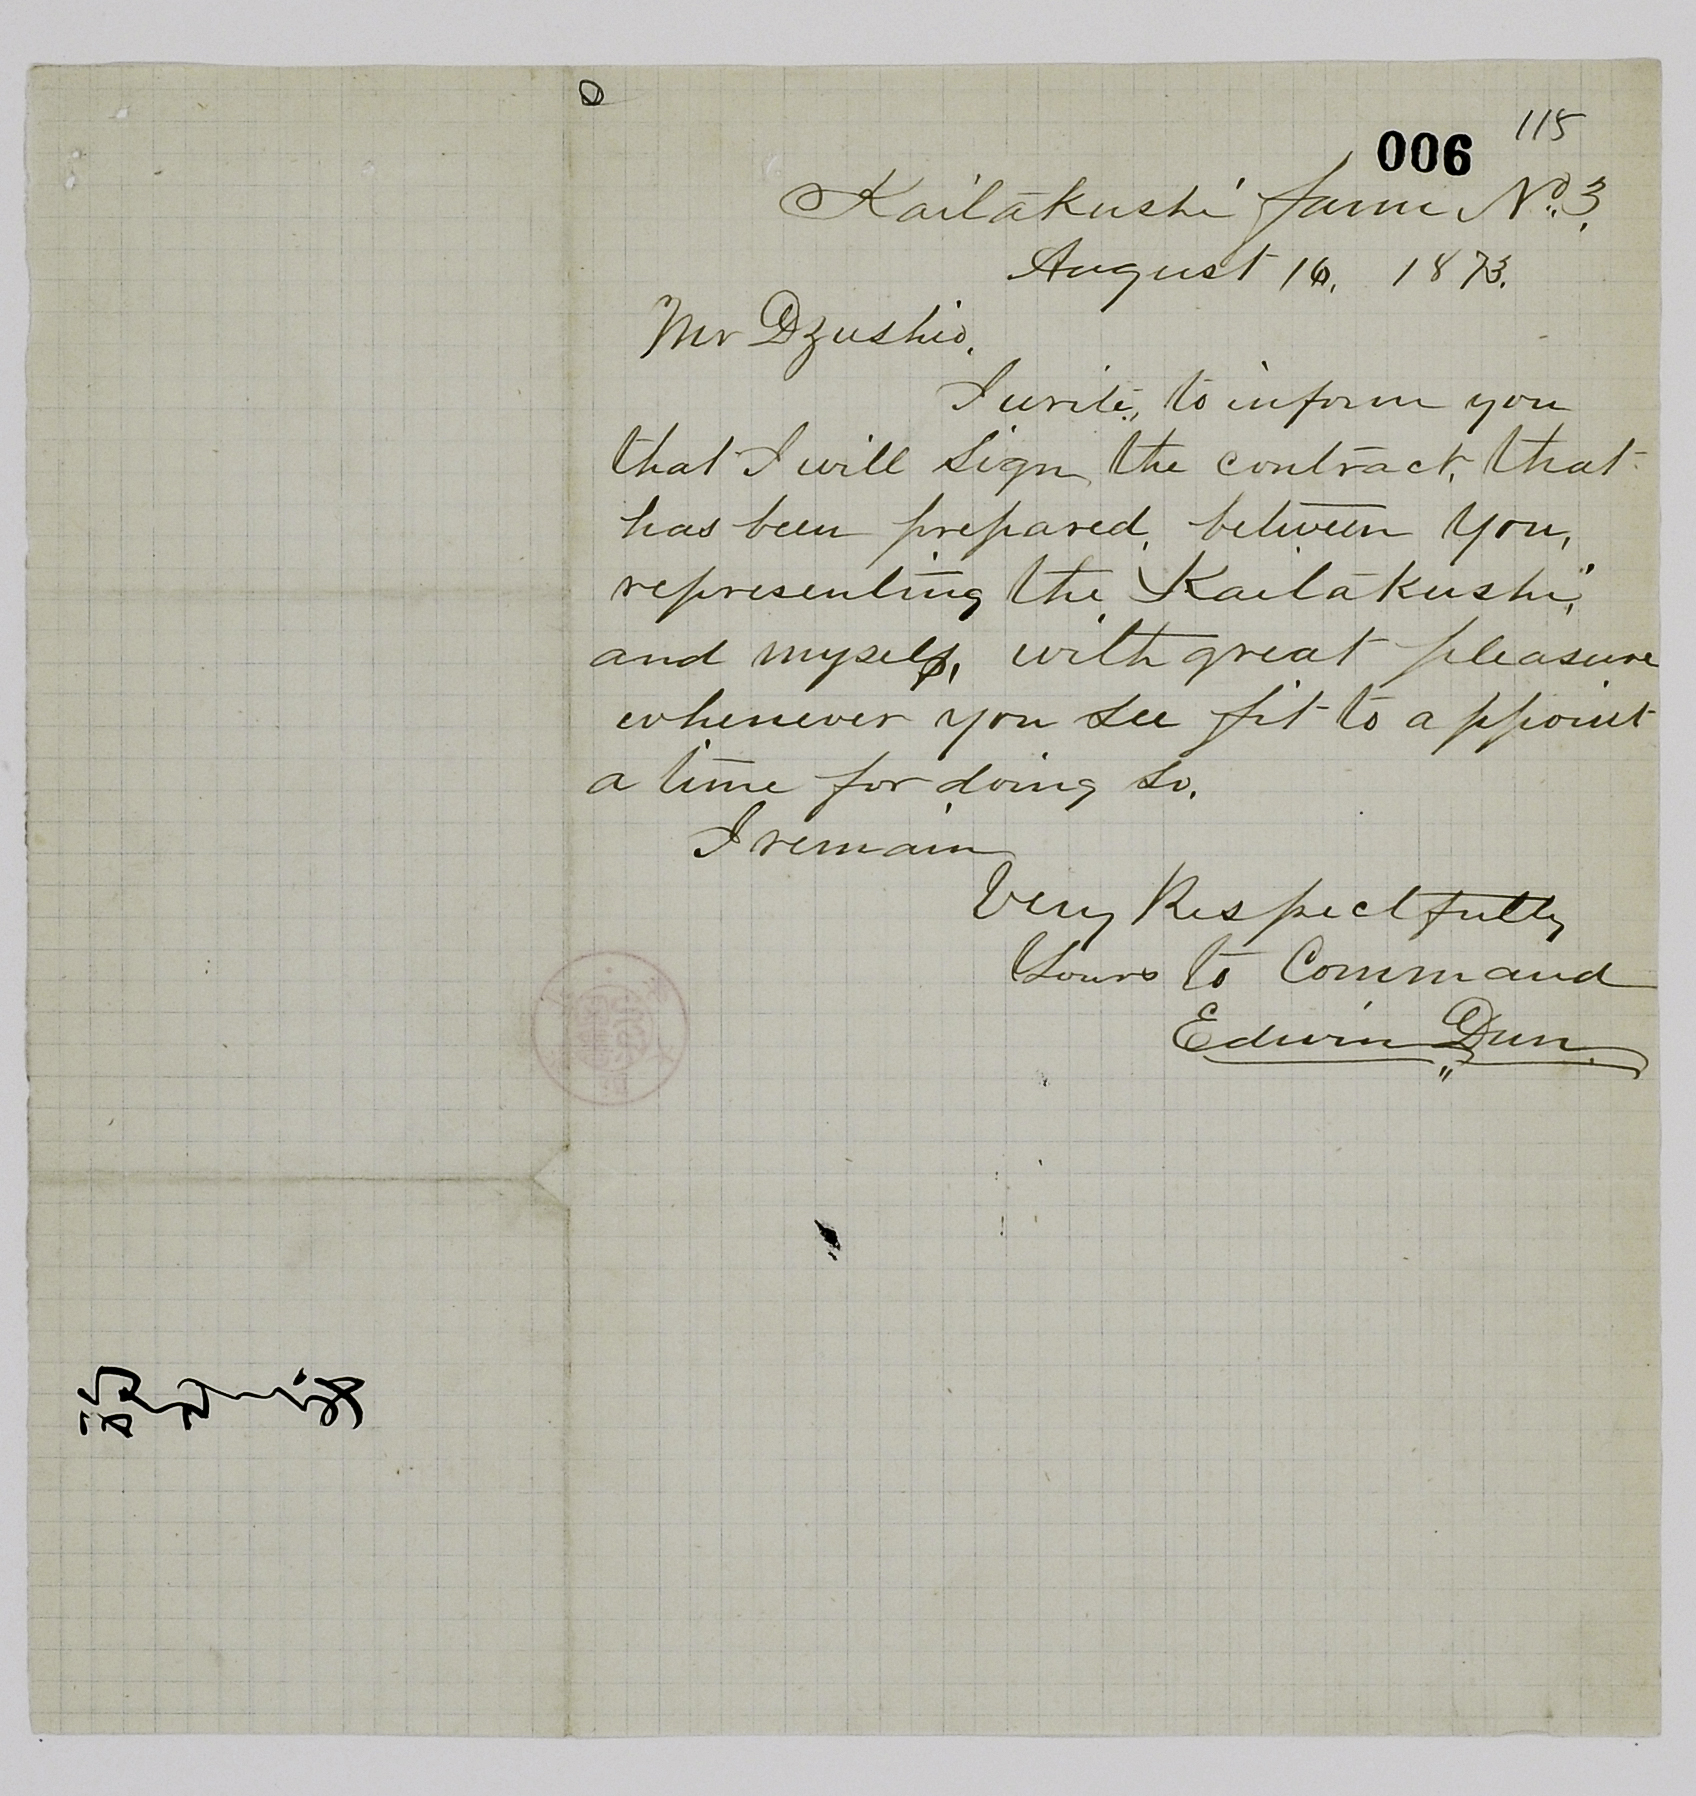 006
115
Kaitakushi farm No. 3.
August 16, 1873.
Mr Dzushio.
I write, to inform you
that I will sign the contract, that
has been prepared, between you,
representing the Kaitakushi,
and myself, with great pleasure
whenever you see fit to appoint
a time for doing so.
I remain
Very Respectfully
Yours to Command
Edwin Dun.